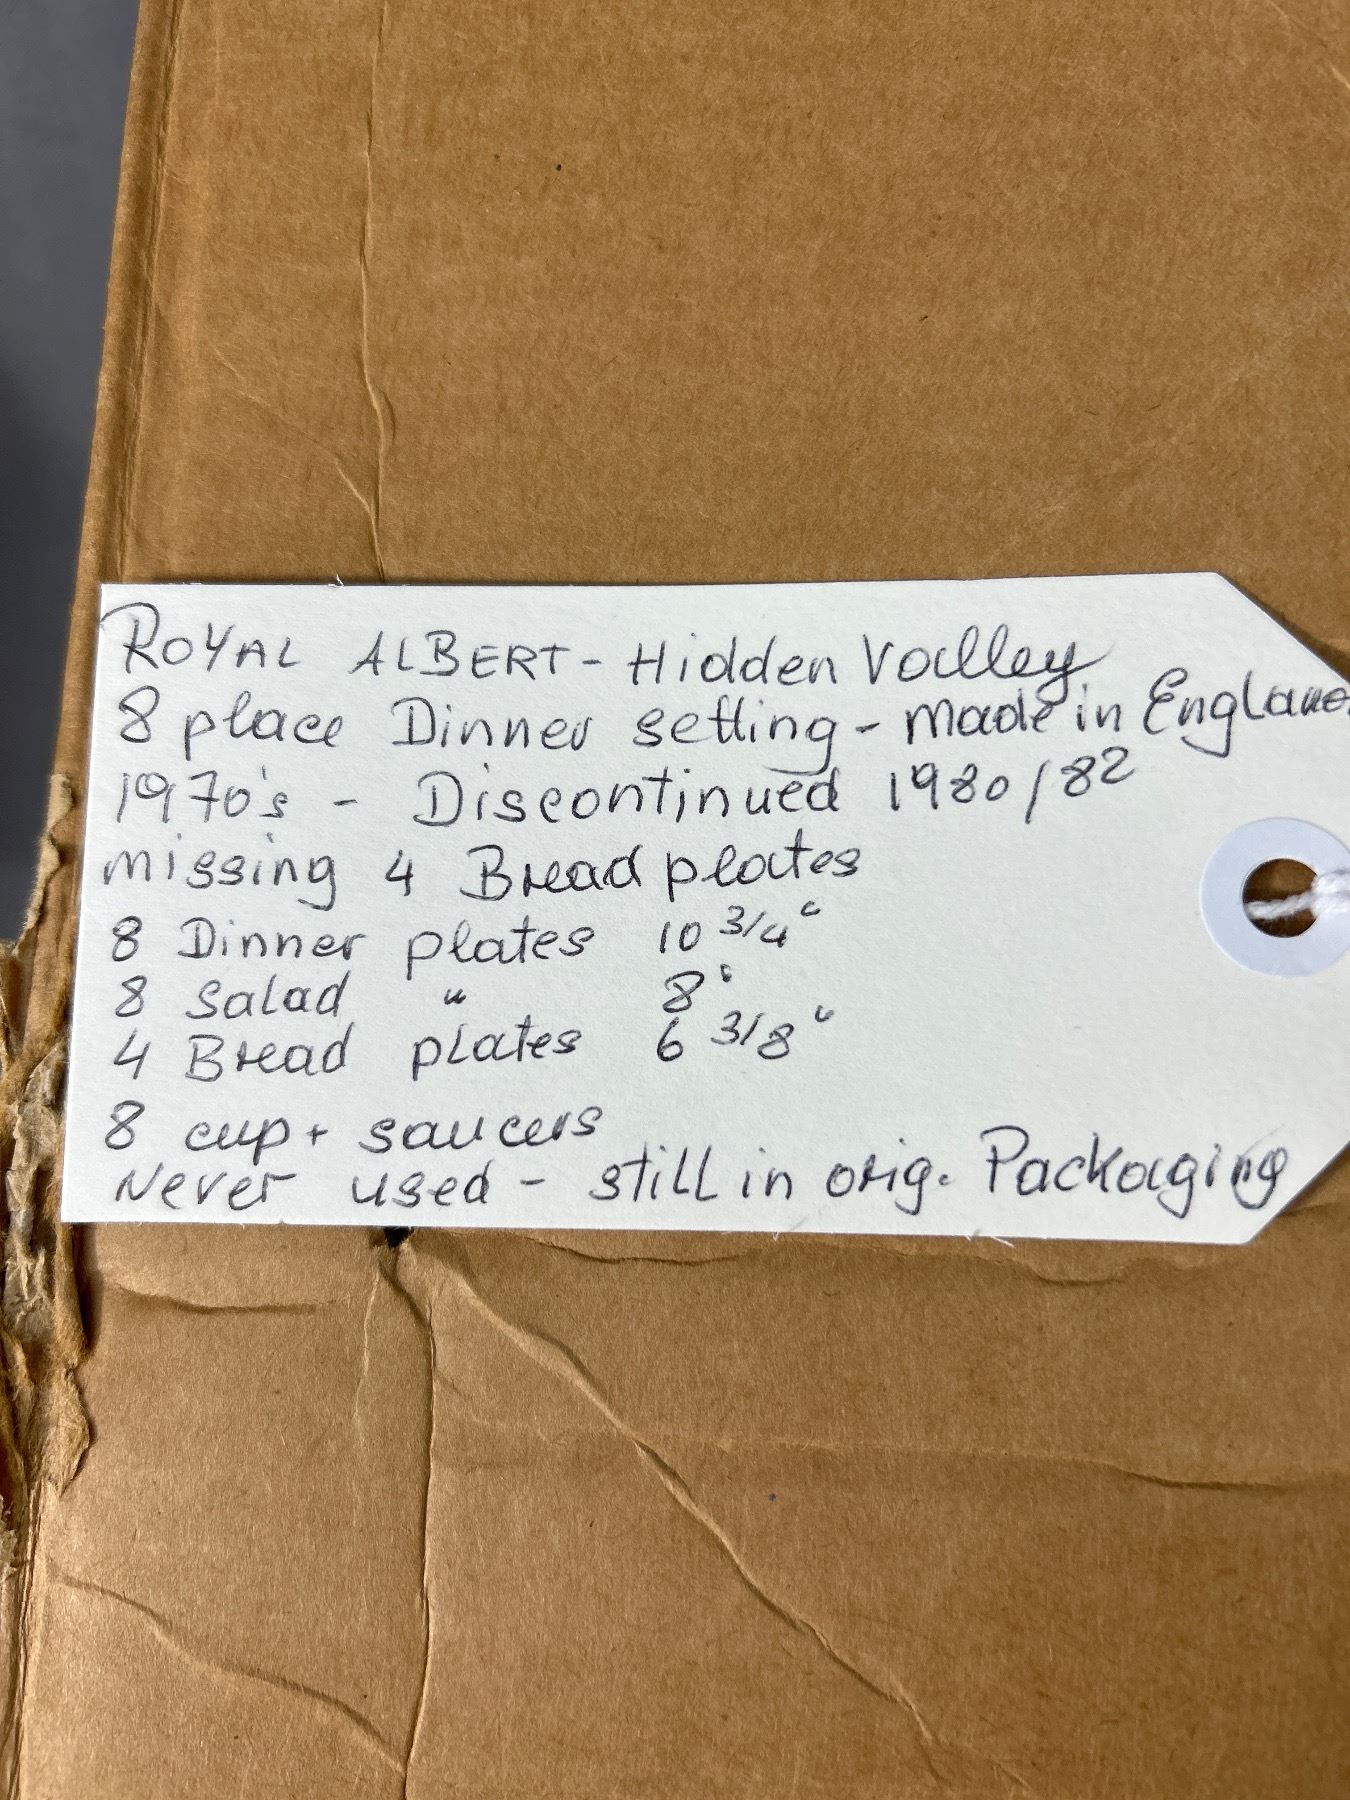 ROYAL ALBERT - Hidden Valley
8 place Dinner setting - made in England
1970's - Discontinued 1980/82
missing 4 Bread plates
8 Dinner plates 10 3/4"
8 Salad " 8"
4 Bread plates 6 3/8"
8 cup + saucers
Never used - still in orig. Packaging